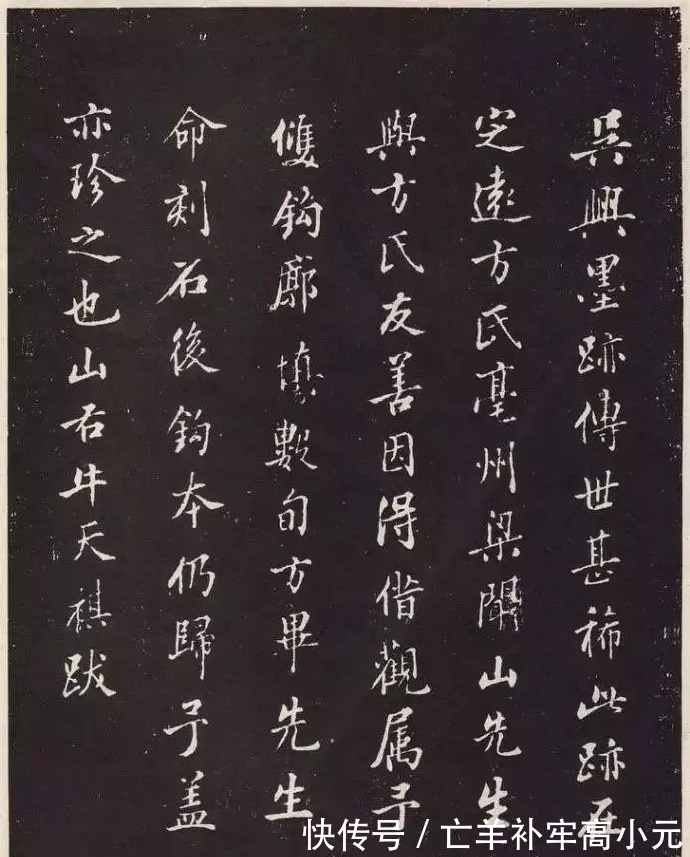 吳興墨跡傳世甚稀此跡在
定遠方氏亳州梁聞山先生
與方氏友善因得借觀属予
雙鈎廓填數旬方畢先生
命刻石後鈎本仍歸予盖
亦珍之也山右牛天祺跋
快传号 / 亡羊补牢高小元